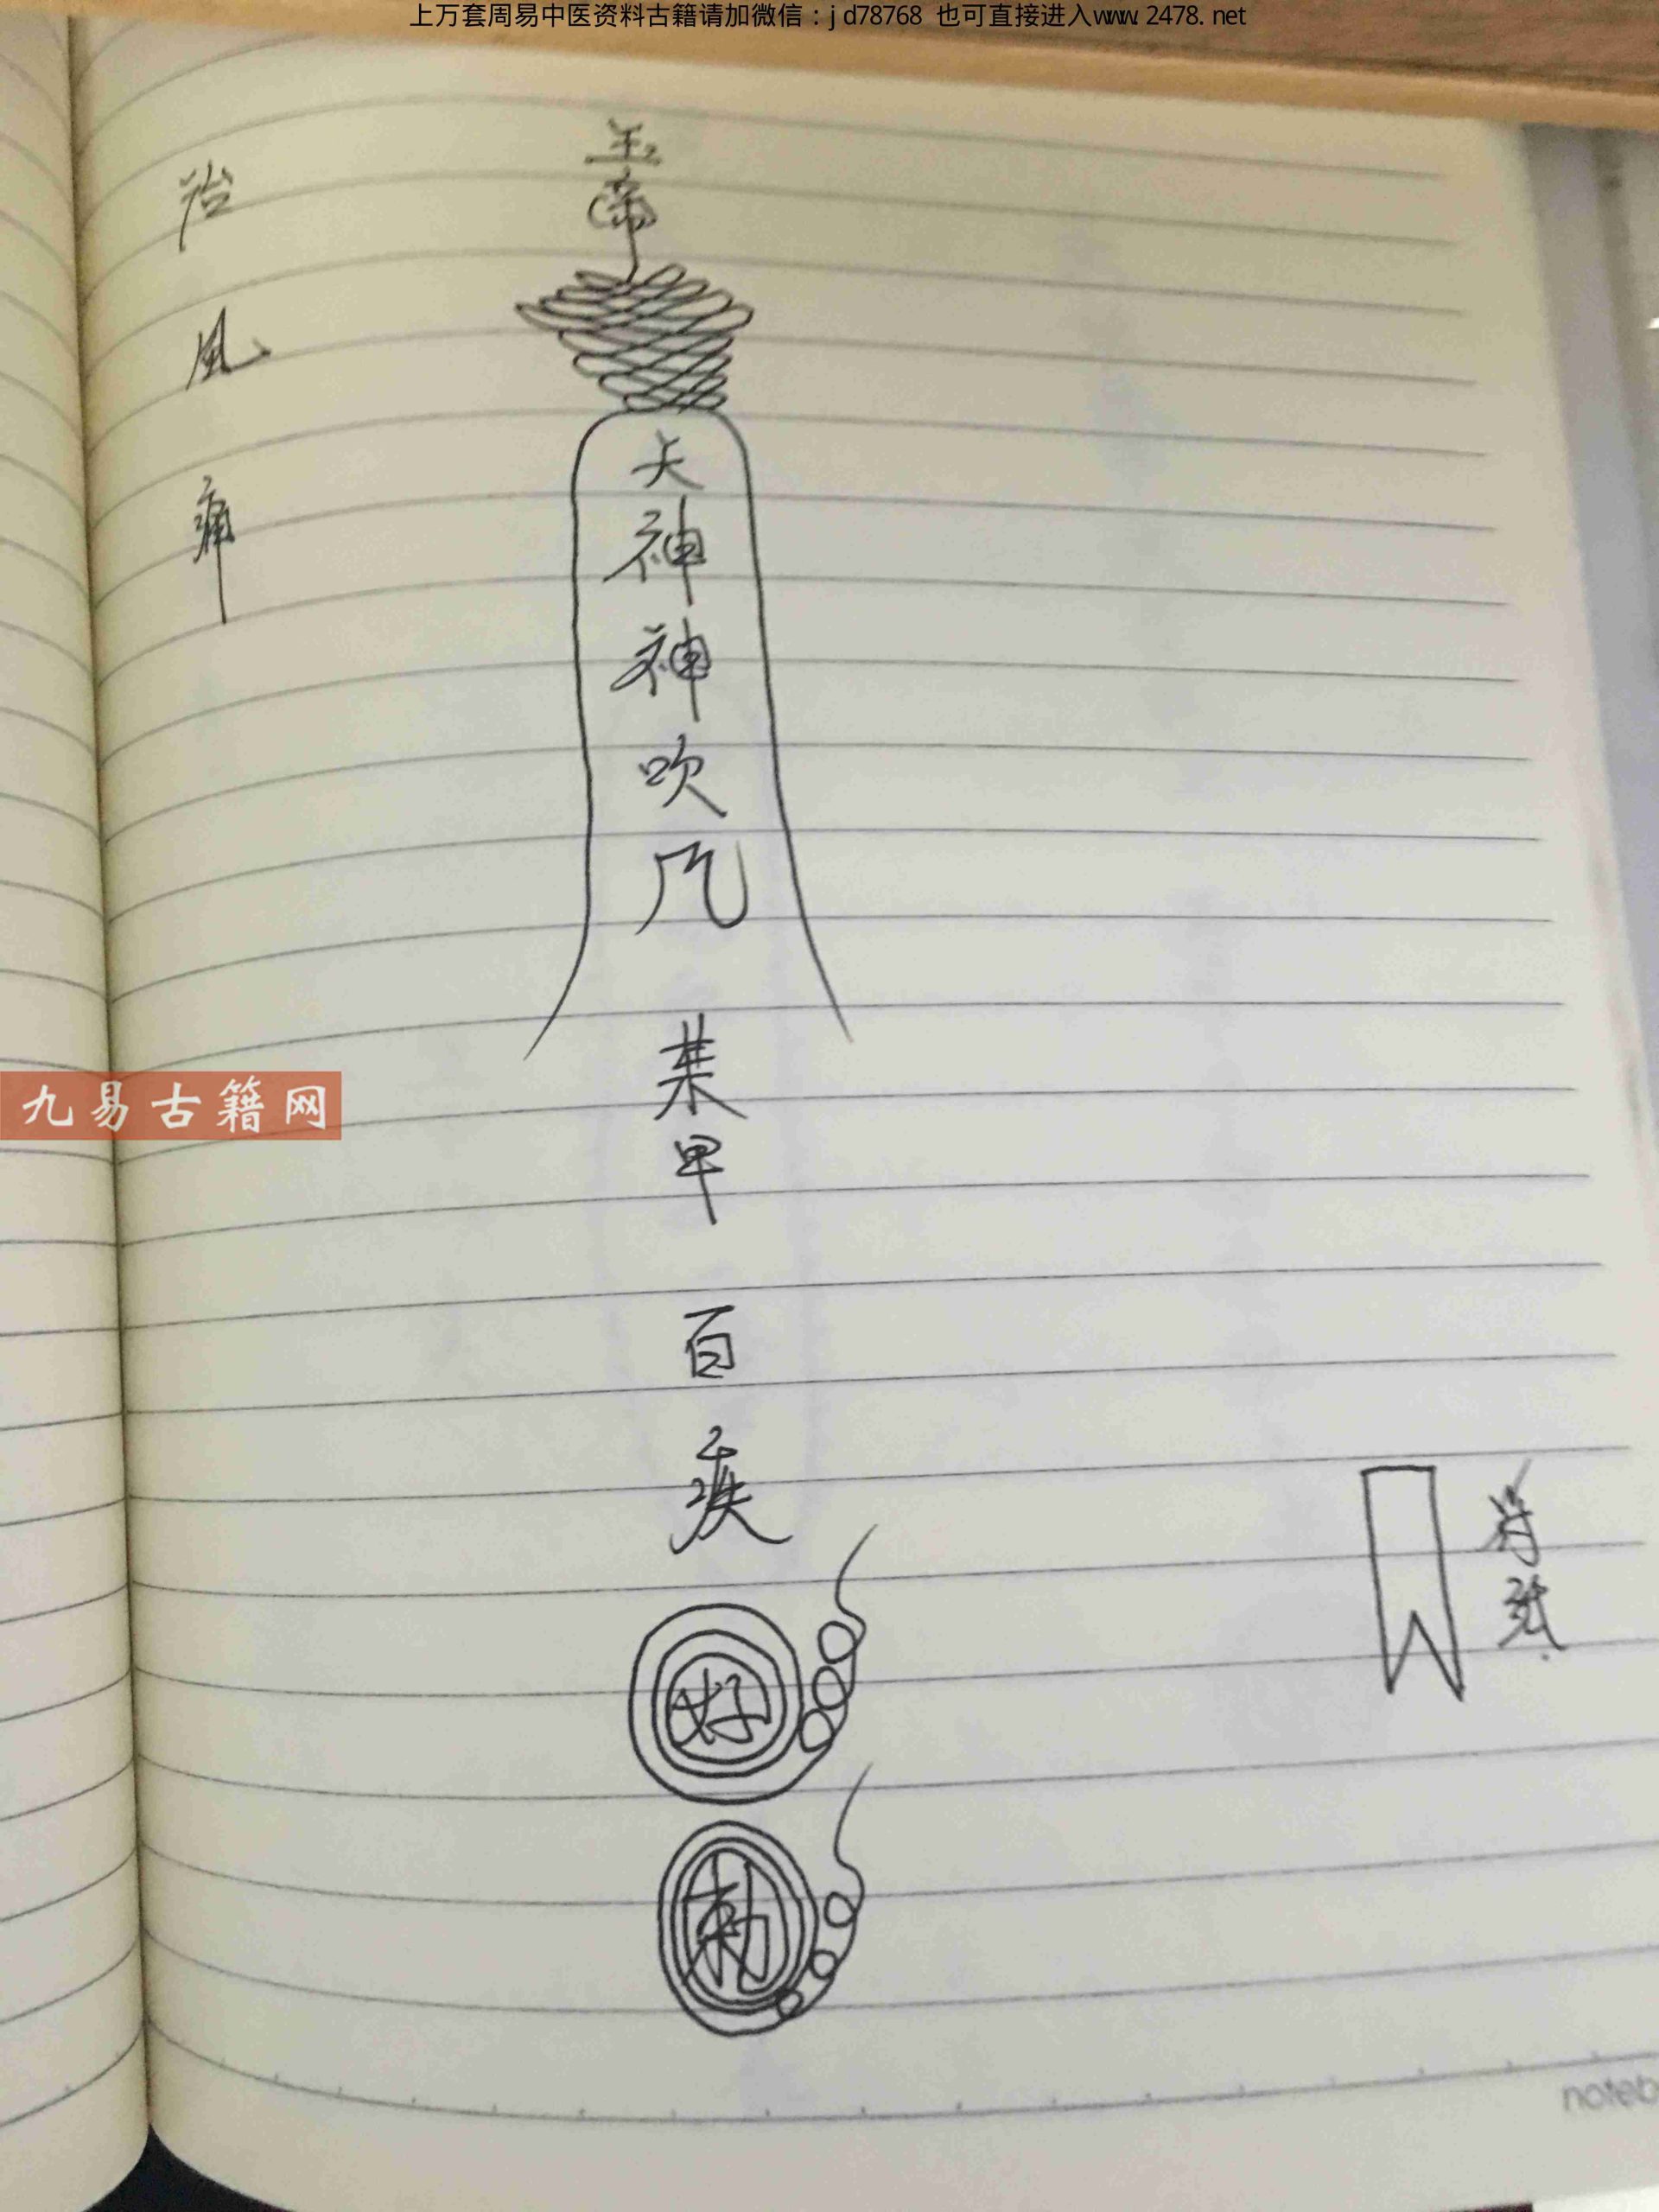 上万套周易中医资料古籍请加微信：jd78768 也可直接进入www.2478.net
治風痛
玉帝
天神神吹
某甲
百疾
好
勅
符紙
九易古籍网